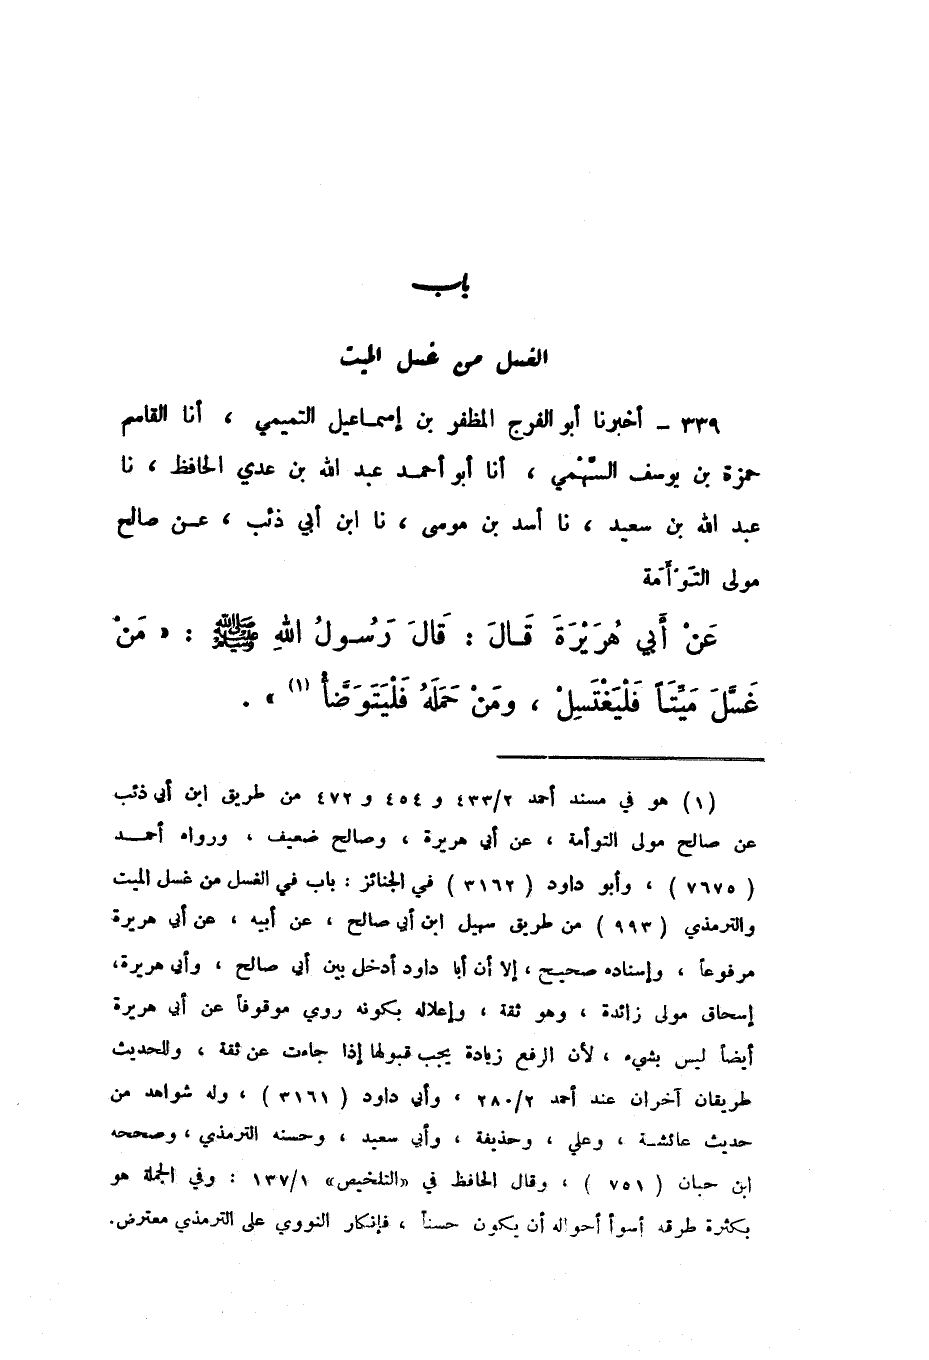 باب
الغسل من غسل الميت
٣٣٩ - أخبرنا أبو الفرج المظفر بن إسماعيل التميمي ، أنا القاسم
حمزة بن يوسف السَّهْمي ، أنا أبو أحمد عبد الله بن عدي الحافظ ، نا
عبد الله بن سعيد ، نا أسد بن موسى ، نا ابن أبي ذئب ، عن صالح
مولى التَوْأَمَة
عَنْ أَبي هُرَيْرَةَ قَالَ : قَالَ رَسُولُ اللهِ ﷺ : « مَنْ
غَسَّلَ مَيِّتَاً فَلْيَغْتَسِلْ ، ومَنْ حَمَلَهُ فَلْيَتَوَضَّأْ (١) » .
(١) هو في مسند أحمد ٤٣٣/٢ و ٤٥٤ و ٤٧٢ من طريق ابن أبي ذئب
عن صالح مولى التوأمة ، عن أبي هريرة ، وصالح ضعيف ، ورواه أحمد
( ٧٦٧٥ ) ، وأبو داود ( ٣١٦٢ ) في الجنائز : باب في الغسل من غسل الميت
والترمذي ( ٩٩٣ ) من طريق سهيل ابن أبي صالح ، عن أبيه ، عن أبي هريرة
مرفوعاً ، وإسناده صحيح ، إلا أن أبا داود أدخل بين أبي صالح ، وأبي هريرة،
إسحاق مولى زائدة ، وهو ثقة ، وإعلاله بكونه روي موقوفاً عن أبي هريرة
أيضاً ليس بشيء ، لأن الرفع زيادة يجب قبولها إذا جاءت عن ثقة ، وللحديث
طريقان آخران عند أحمد ٢٨٠/٢ ، وأبي داود ( ٣١٦١ ) ، وله شواهد من
حديث عائشة ، وعلي ، وحذيفة ، وأبي سعيد ، وحسنه الترمذي ، وصححه
ابن حبان ( ٧٥١ ) ، وقال الحافظ في «التلخيص» ١٣٧/١ : وفي الجملة هو
بكثرة طرقه أسوأ أحواله أن يكون حسناً ، فإنكار النووي على الترمذي معترض.